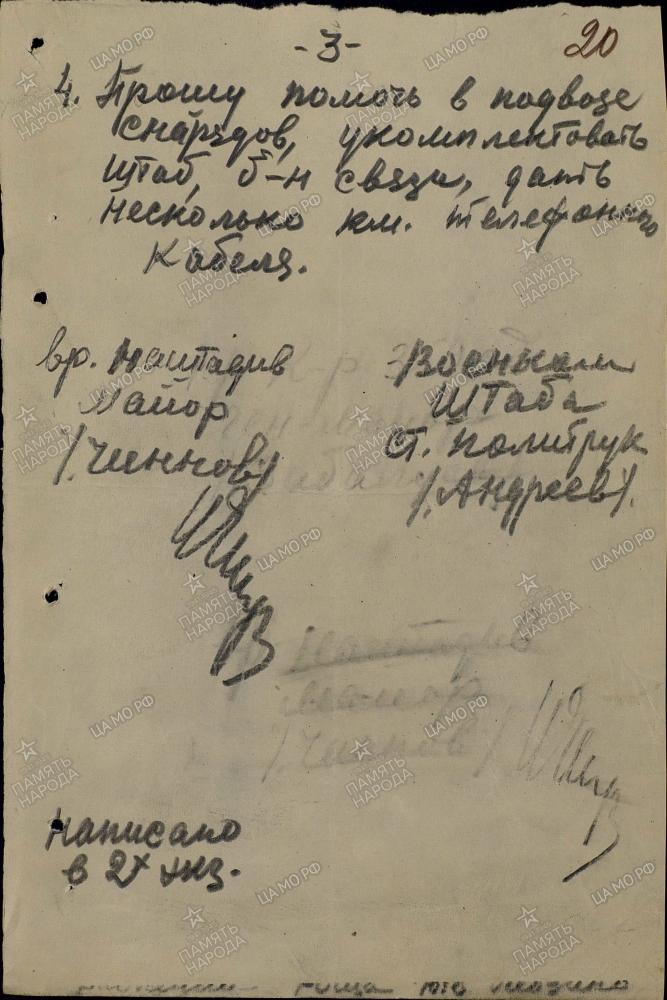 -3-
20
4. Прошу помочь в подвозе
снарядов, укомплектовать
штаб, б-н связи, дать
несколько км. телефонного
кабеля.
вр. Наштадив
Майор
/.Чиннов/
Военком
Штаба
ст. политрук
/.Андреев/.
Наштадив
майор
/.Чиннов/
Написано
в 2х экз.
ЦАМО РФ
ПАМЯТЬ
НАРОДА